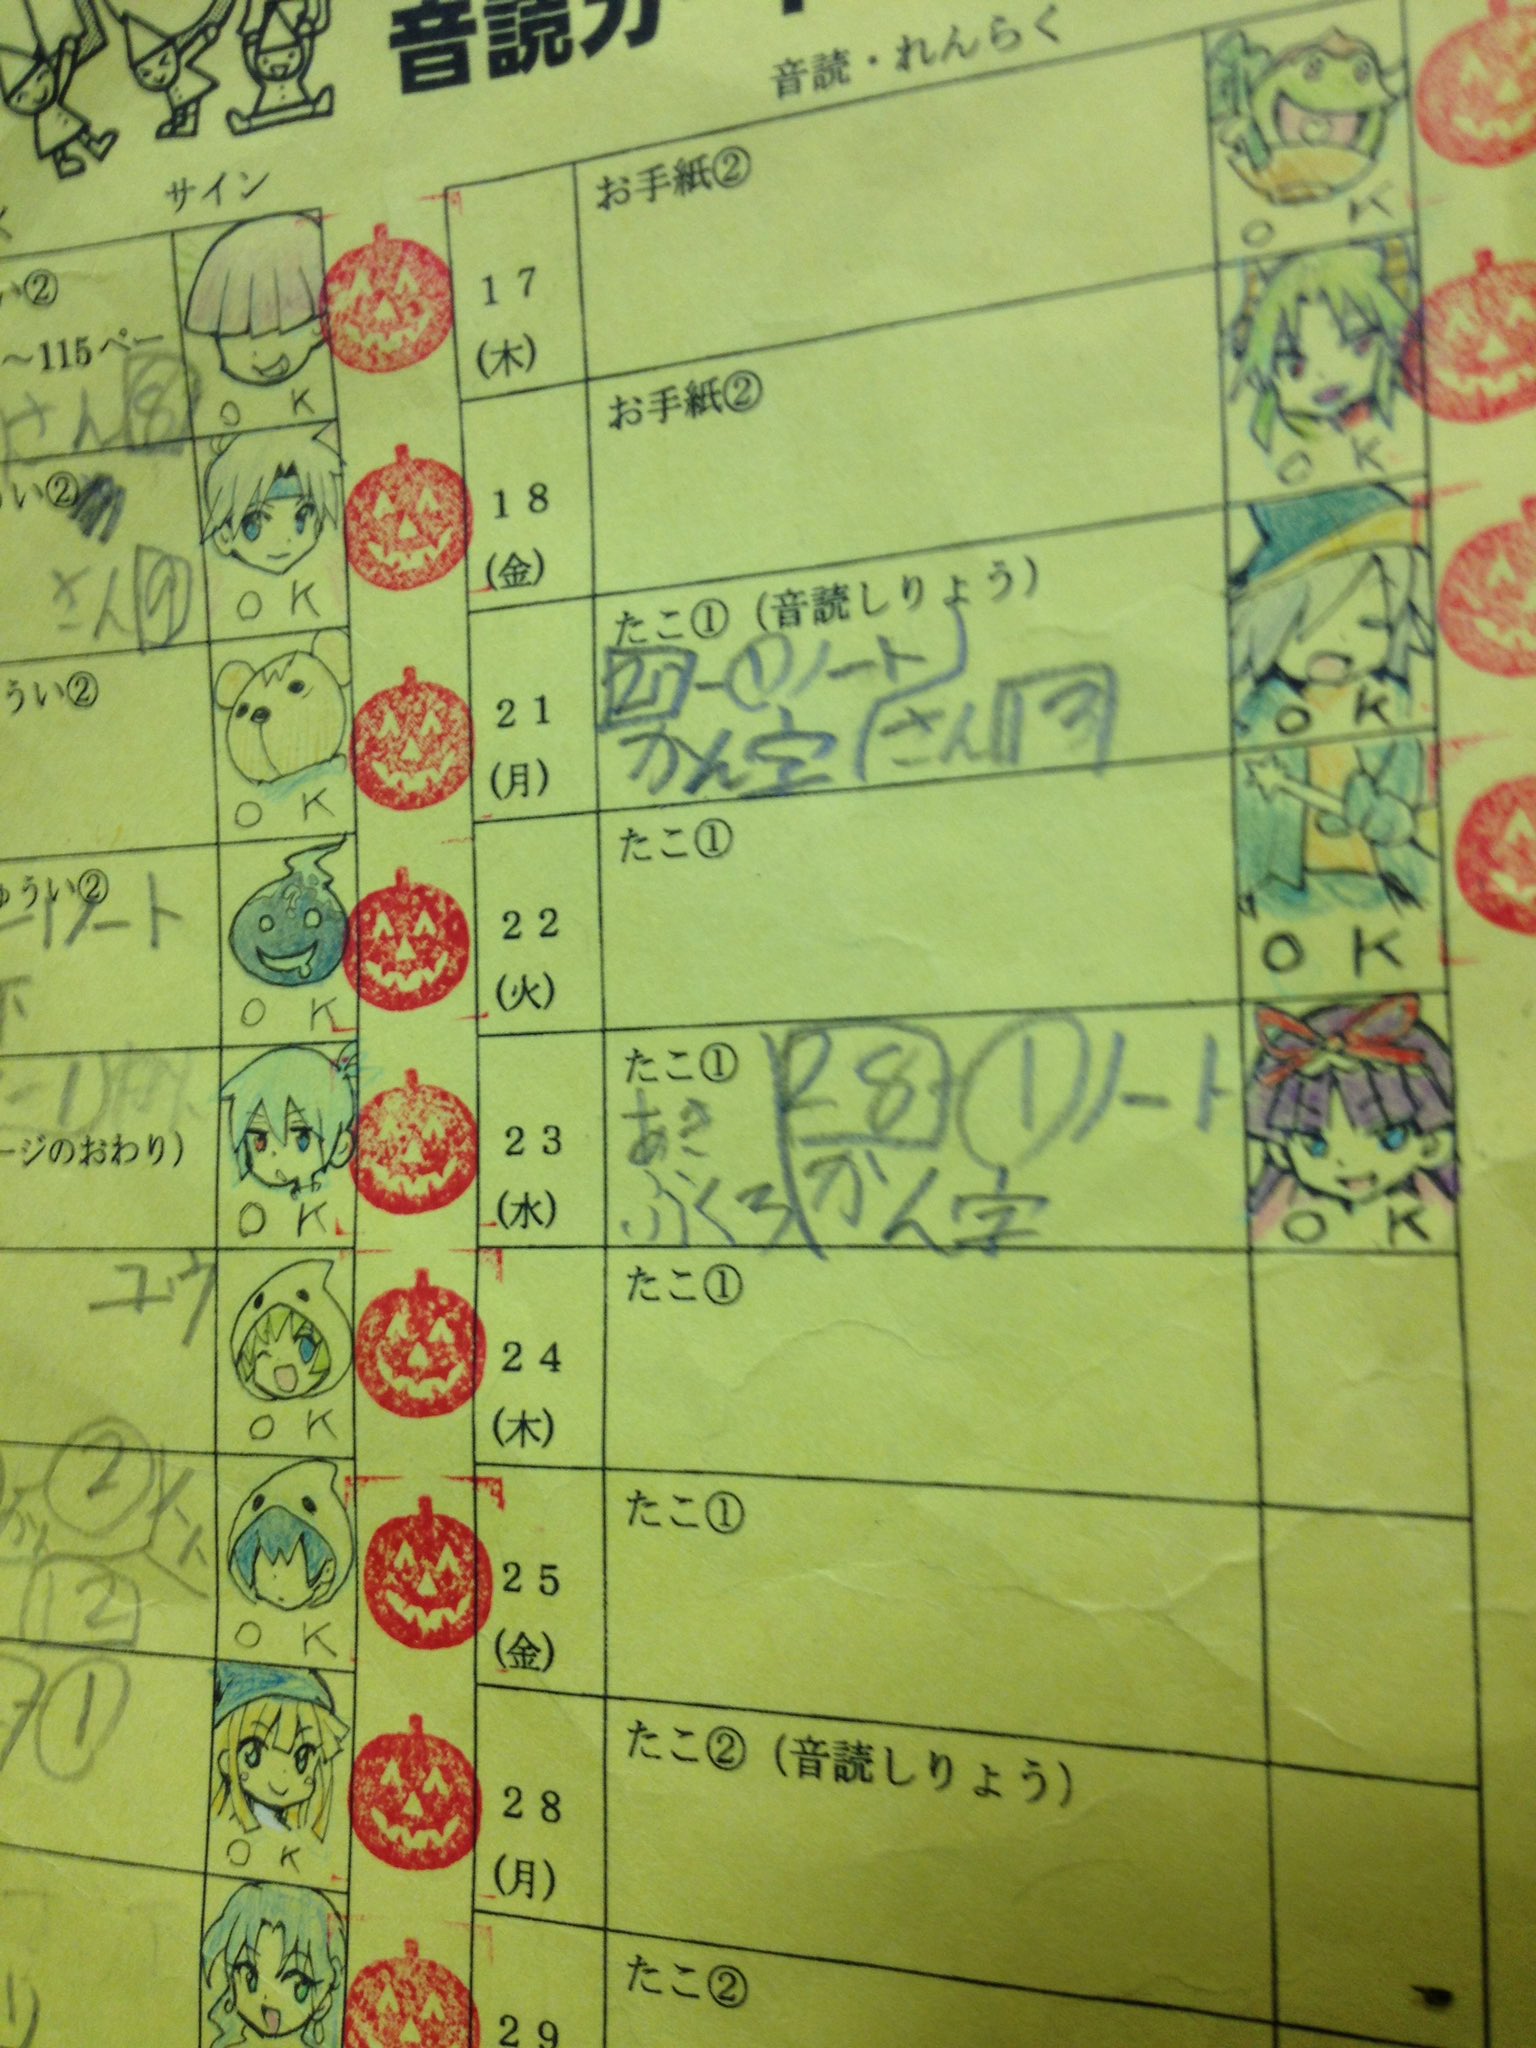 音読カード
音読・れんらく
サイン
い②
～115ペー
さん⑧
O K
い②
さん⑨
O K
うい②
O K
ゅうい②
ーノート
O K
ージのおわり）
O K
O K
②
12
O K
①
O K
17
(木)
お手紙②
O K
18
(金)
お手紙②
O K
21
(月)
たこ①（音読しりょう）
27-①ノート
かん字 さん13
O K
22
(火)
たこ①
O K
23
(水)
たこ① 28-①ノート
あき
ぶくろ かん字
O K
24
(木)
たこ①
25
(金)
たこ①
28
(月)
たこ②（音読しりょう）
29
たこ②